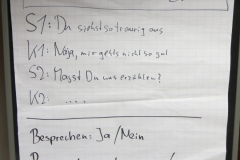 S1: Du siehst so traurig aus
K1: Naja, mir gehts nicht so gut
S2: Magst Du was erzählen?
K2: ....
Besprechen: Ja/Nein